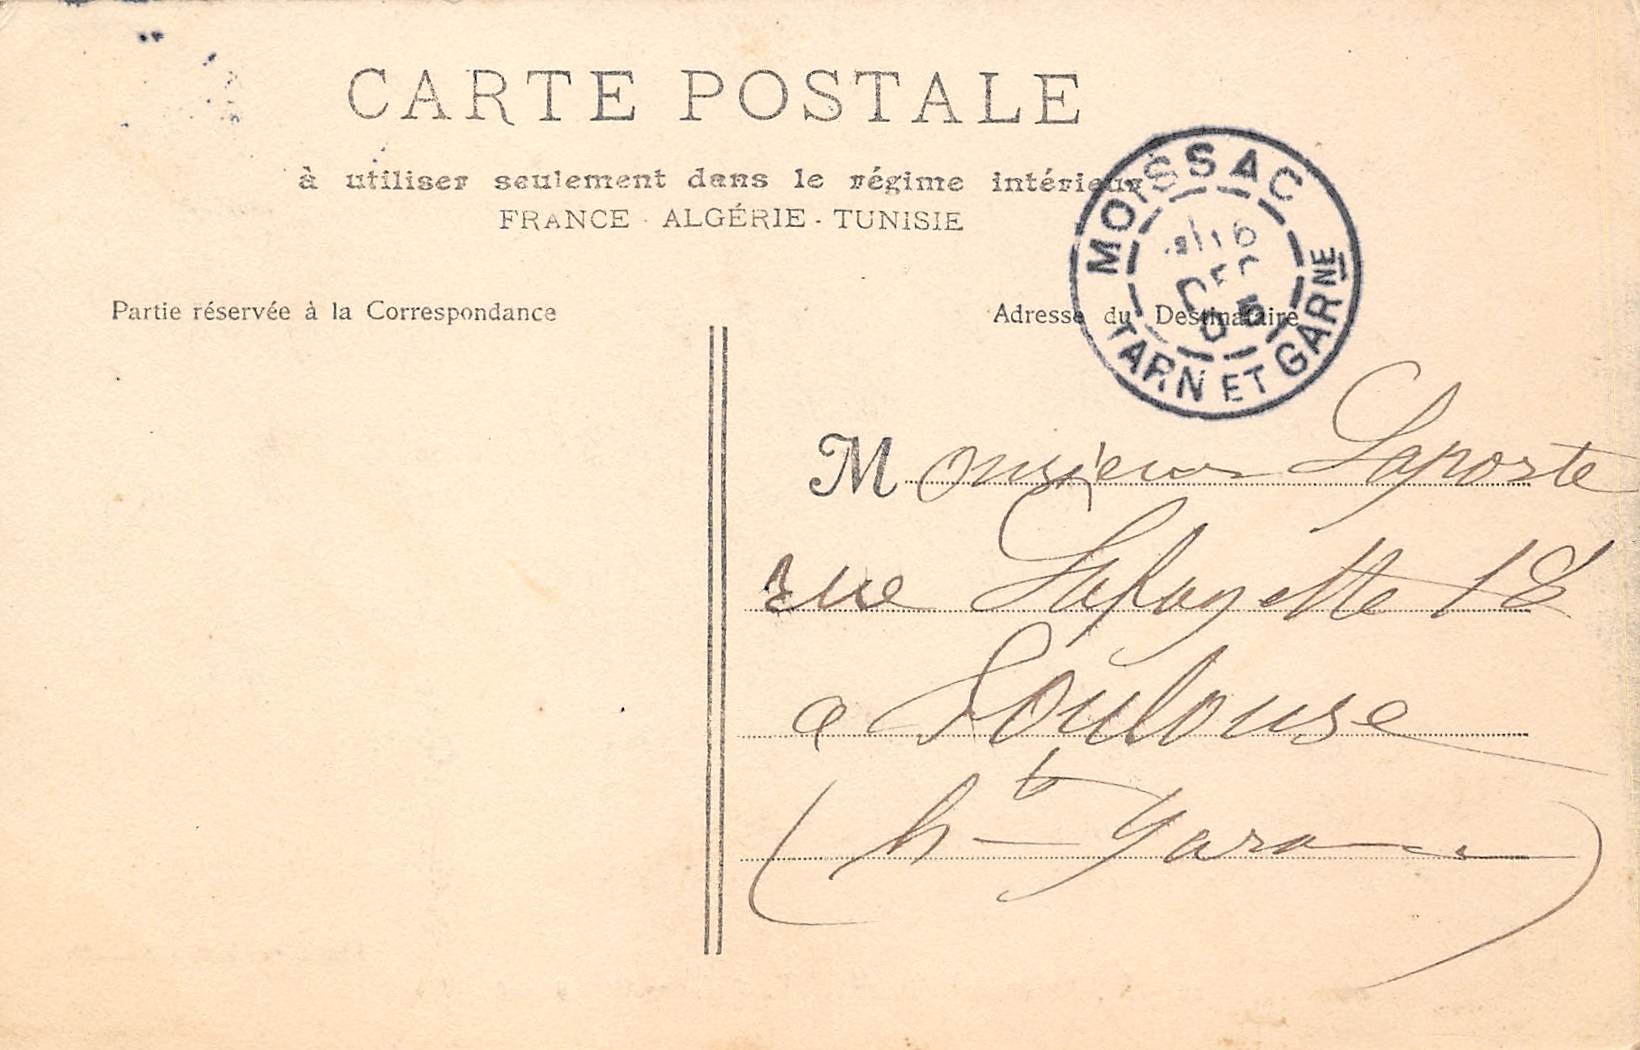 CARTE POSTALE
à utiliser seulement dans le régime intérieur
FRANCE - ALGÉRIE - TUNISIE
MOISSAC
TARN ET GARNE
Partie réservée à la Correspondance
Adresse du Destinataire
Monsieur Laporte
rue Lafayette 18
a Toulouse
(hte Garonne)